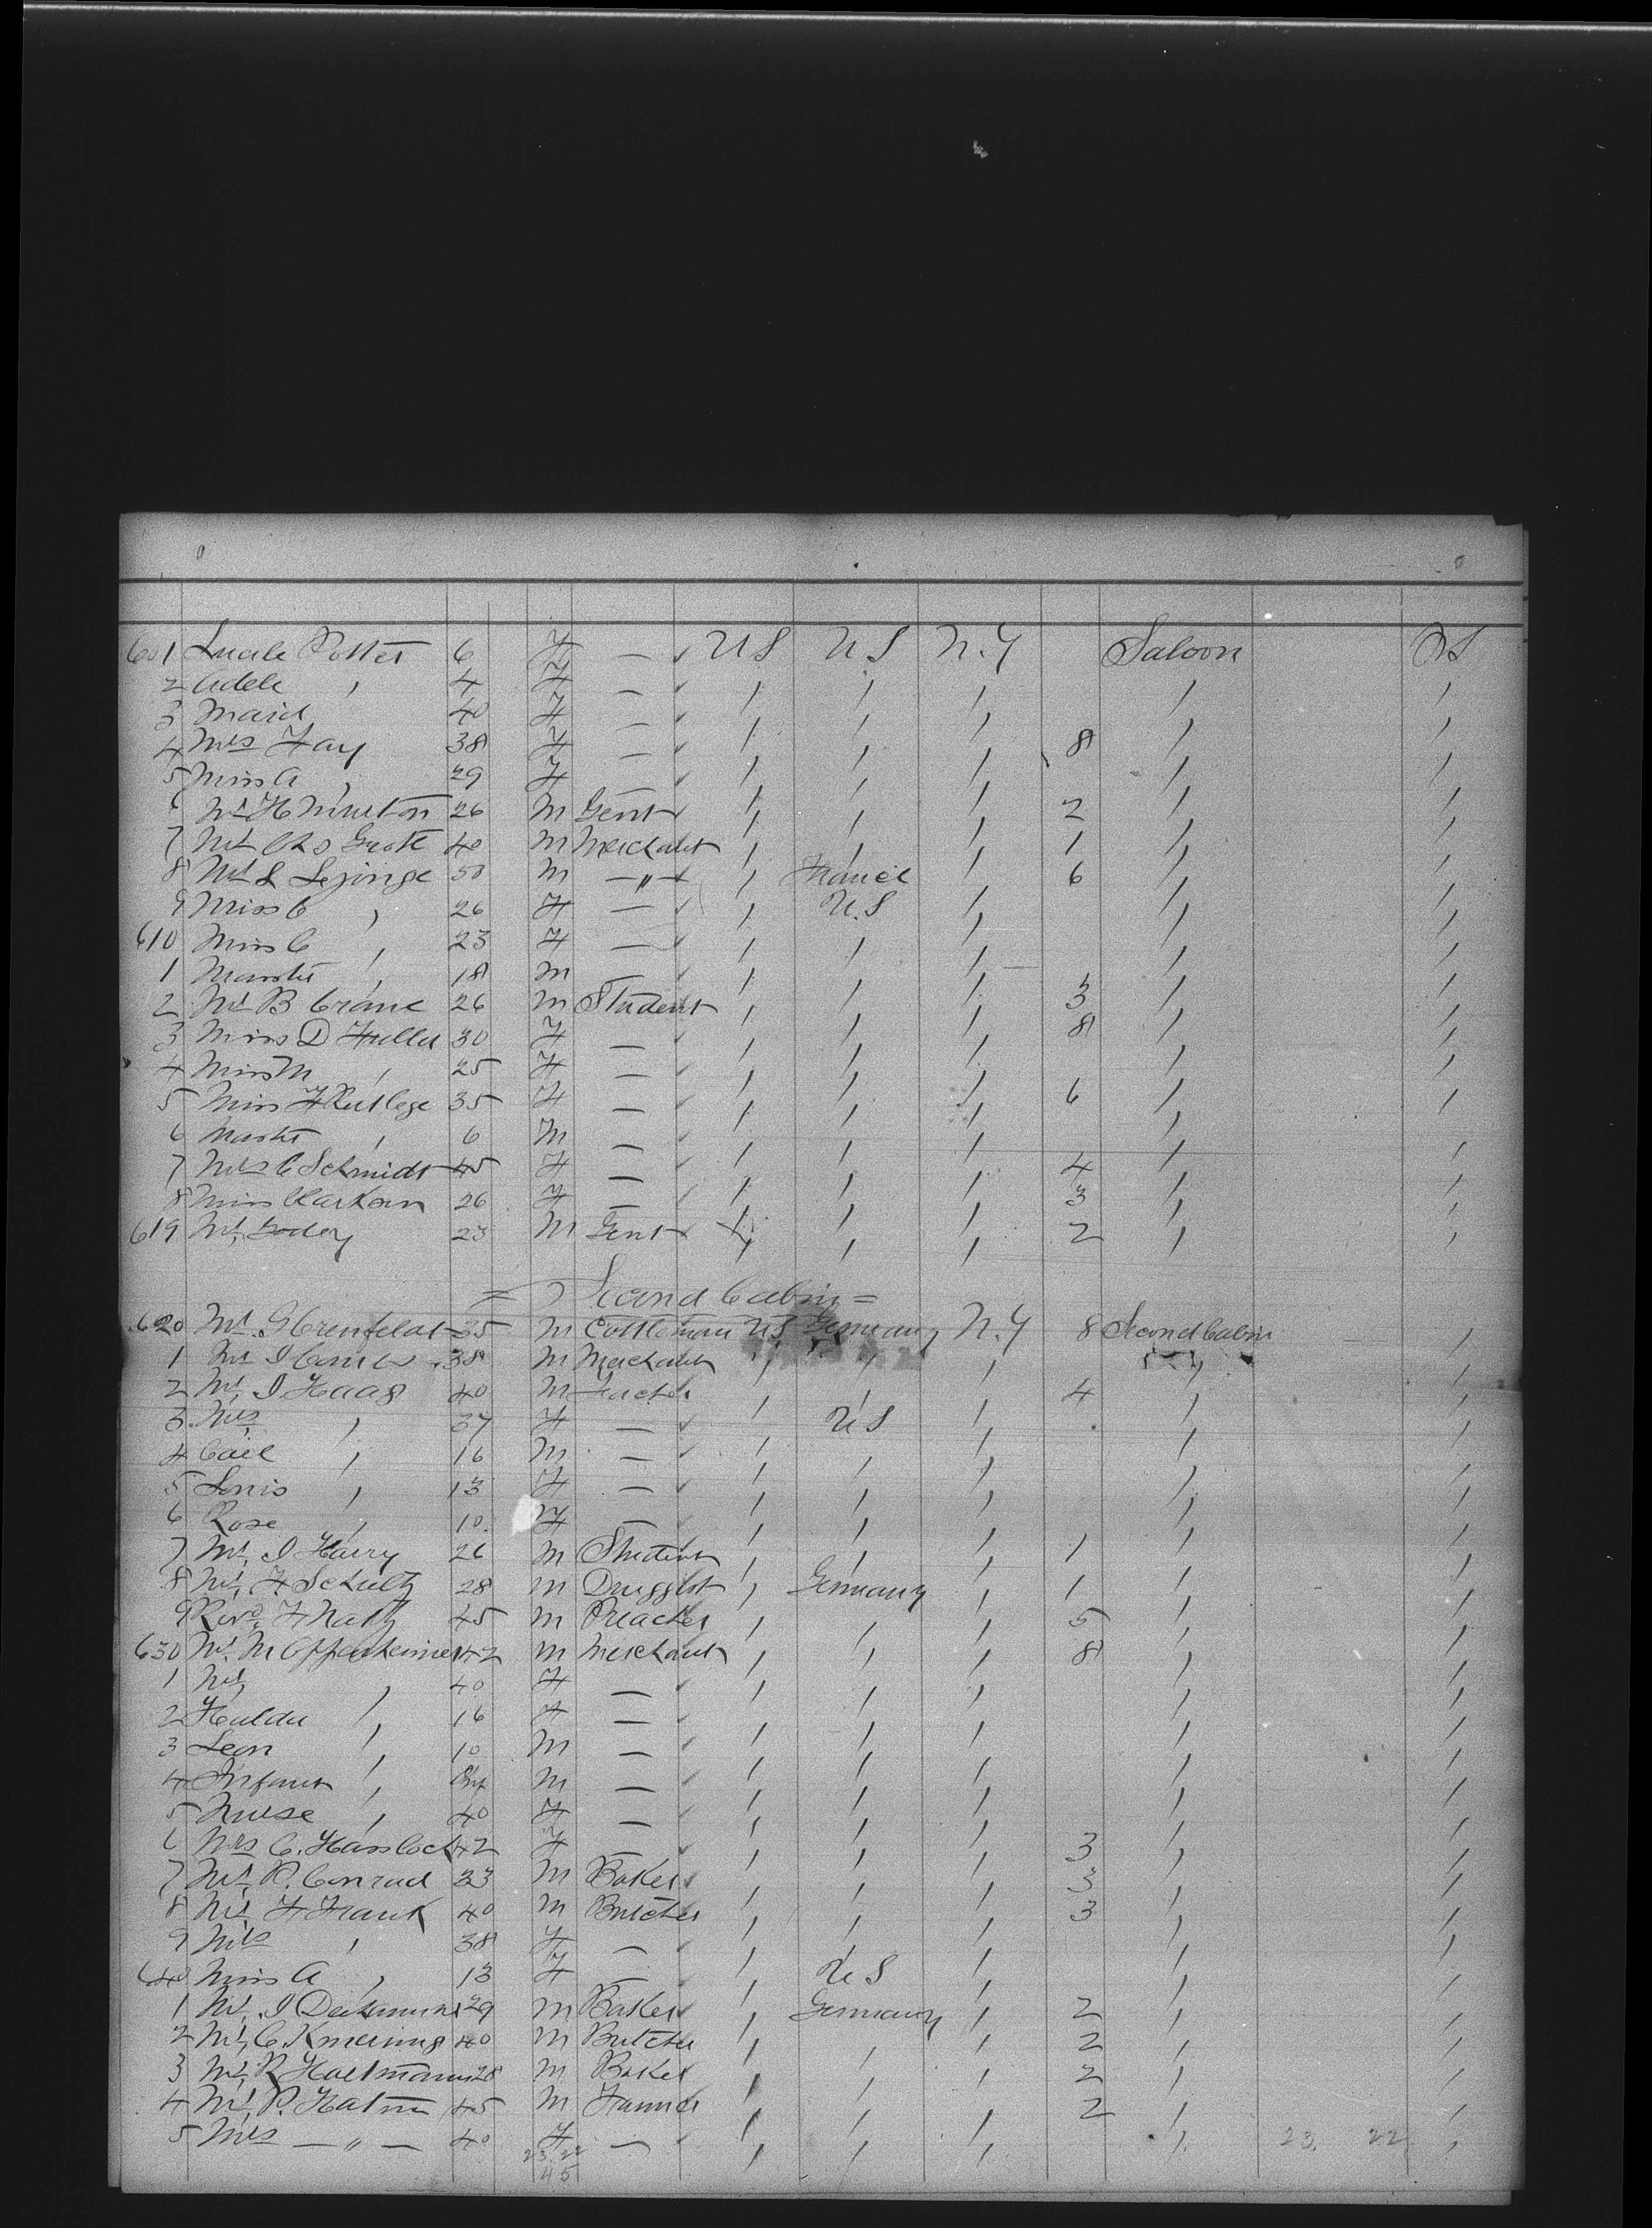 601 Lucile Potter 6 F — ✓ US U S N.Y Saloon
2 Adele , 4 F — ✓ / / / / /
3 Maid 40 F — ✓ / / / / /
4 Mrs Fay 38 F — ✓ / / / 8 / /
5 Miss A , 29 F — ✓ / / / / /
Mr H 26 M Gent / / / 2 / /
7 Mr Chs Grote 40 M Merchant / / / 1 / /
8 Mr L 50 M — " — / France / 6 / /
9 Miss C , 26 F — ✓ / U.S / / /
610 Miss C , 23 F — ✓ / / / / /
1 Master , 18 M — ✓ / / / / /
2 Mr B Crane 26 M Student / / / 3 / /
3 Miss D Fuller 30 F — ✓ / / / 8 / /
4 Miss M , 25 F — ✓ / / / / /
5 Miss F Rutlege 35 F — ✓ / / / 6 / /
6 Master , 6 M — ✓ / / / / /
7 Mrs C Schmidt 45 F — ✓ / / / 4 / /
8 Miss Clarkson 26 F — ✓ / / / 3 / /
619 Mr 23 M Gent / / / 2 / /
= Second Cabin =
620 Mr 35 M Cattleman US Germany N.Y 8 Second Cabin /
1 Mr I 38 M Merchant / / / / /
2 Mr, I Haag 40 M / / / 4 / /
3 Mrs , 37 F — ✓ / U S / / /
4 Carl , 16 M — ✓ / / / / /
5 Louis , 13 F — ✓ / / / / /
6 Rose , 10. F — ✓ / / / / /
7 Mr, I Harry 26 M Student / / / 1 / /
8 Mr, F Schultz 28 M Druggist / Germany / 1 / /
9 Revd, F 45 M Preacher / / / 5 / /
630 Mr. M Oppenheimer 42 M Merchant / / / 8 / /
1 Mrs , 40 F — ✓ / / / / /
2 Hulda , 16 F — ✓ / / / / /
3 Leon , 10 M — ✓ / / / / /
4 Infant , M — ✓ / / / / /
5 Nurse , 40 F — ✓ / / / / /
6 Mrs C. Hasslock 42 F — ✓ / / / 3 / /
7 Mr, P. Conrad 33 M Baker / / / 3 / /
8 Mr, F Frank 40 M Butcher / / / 3 / /
9 Mrs , 38 F — ✓ / / / / /
640 Miss A , 13 F — / U S / / /
1 Mr, I 29 M Baker / Germany / 2 / /
2 Mr, C. 40 M Butcher / / / 2 / /
3 Mr, R Hartmann 28 M Baker / / / 2 / /
4 Mr, P. 45 M Farmer / / / 2 / /
5 Mrs — " — 40 F — ✓ / / / / 23. 22 /
23. 22
45